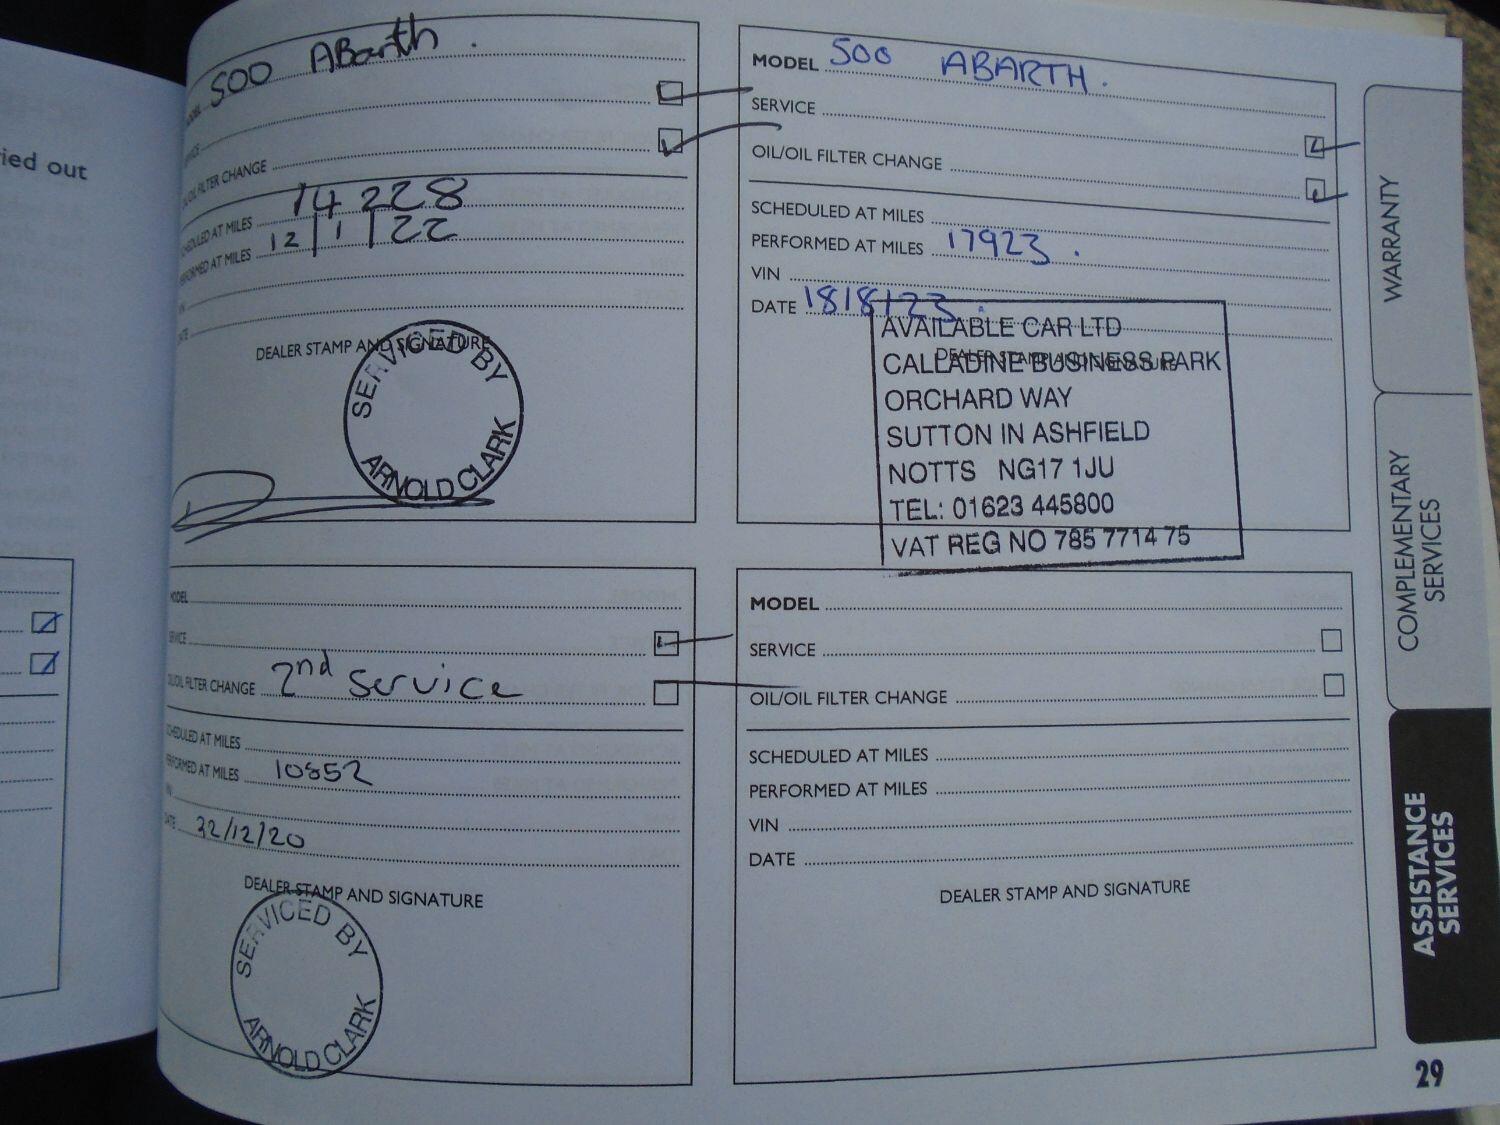 ied out
MODEL 500 ABarth .
SERVICE
OIL/OIL FILTER CHANGE
SCHEDULED AT MILES 14228
PERFORMED AT MILES 12/1/22
VIN
DATE
DEALER STAMP AND SIGNATURE
SERVICED BY
ARNOLD CLARK
MODEL 500 ABARTH .
SERVICE
OIL/OIL FILTER CHANGE
SCHEDULED AT MILES
PERFORMED AT MILES 17923 .
VIN
DATE 18/8/23 .
DEALER STAMP AND SIGNATURE
AVAILABLE CAR LTD
CALLADINE BUSINESS PARK
ORCHARD WAY
SUTTON IN ASHFIELD
NOTTS NG17 1JU
TEL: 01623 445800
VAT REG NO 785 7714 75
MODEL
SERVICE
OIL/OIL FILTER CHANGE 2nd Service
SCHEDULED AT MILES
PERFORMED AT MILES 10852
VIN
DATE
DEALER STAMP AND SIGNATURE
SERVICED BY
ARNOLD CLARK
MODEL
SERVICE
OIL/OIL FILTER CHANGE
SCHEDULED AT MILES
PERFORMED AT MILES
VIN
DATE
DEALER STAMP AND SIGNATURE
WARRANTY
COMPLEMENTARY
SERVICES
ASSISTANCE
SERVICES
29